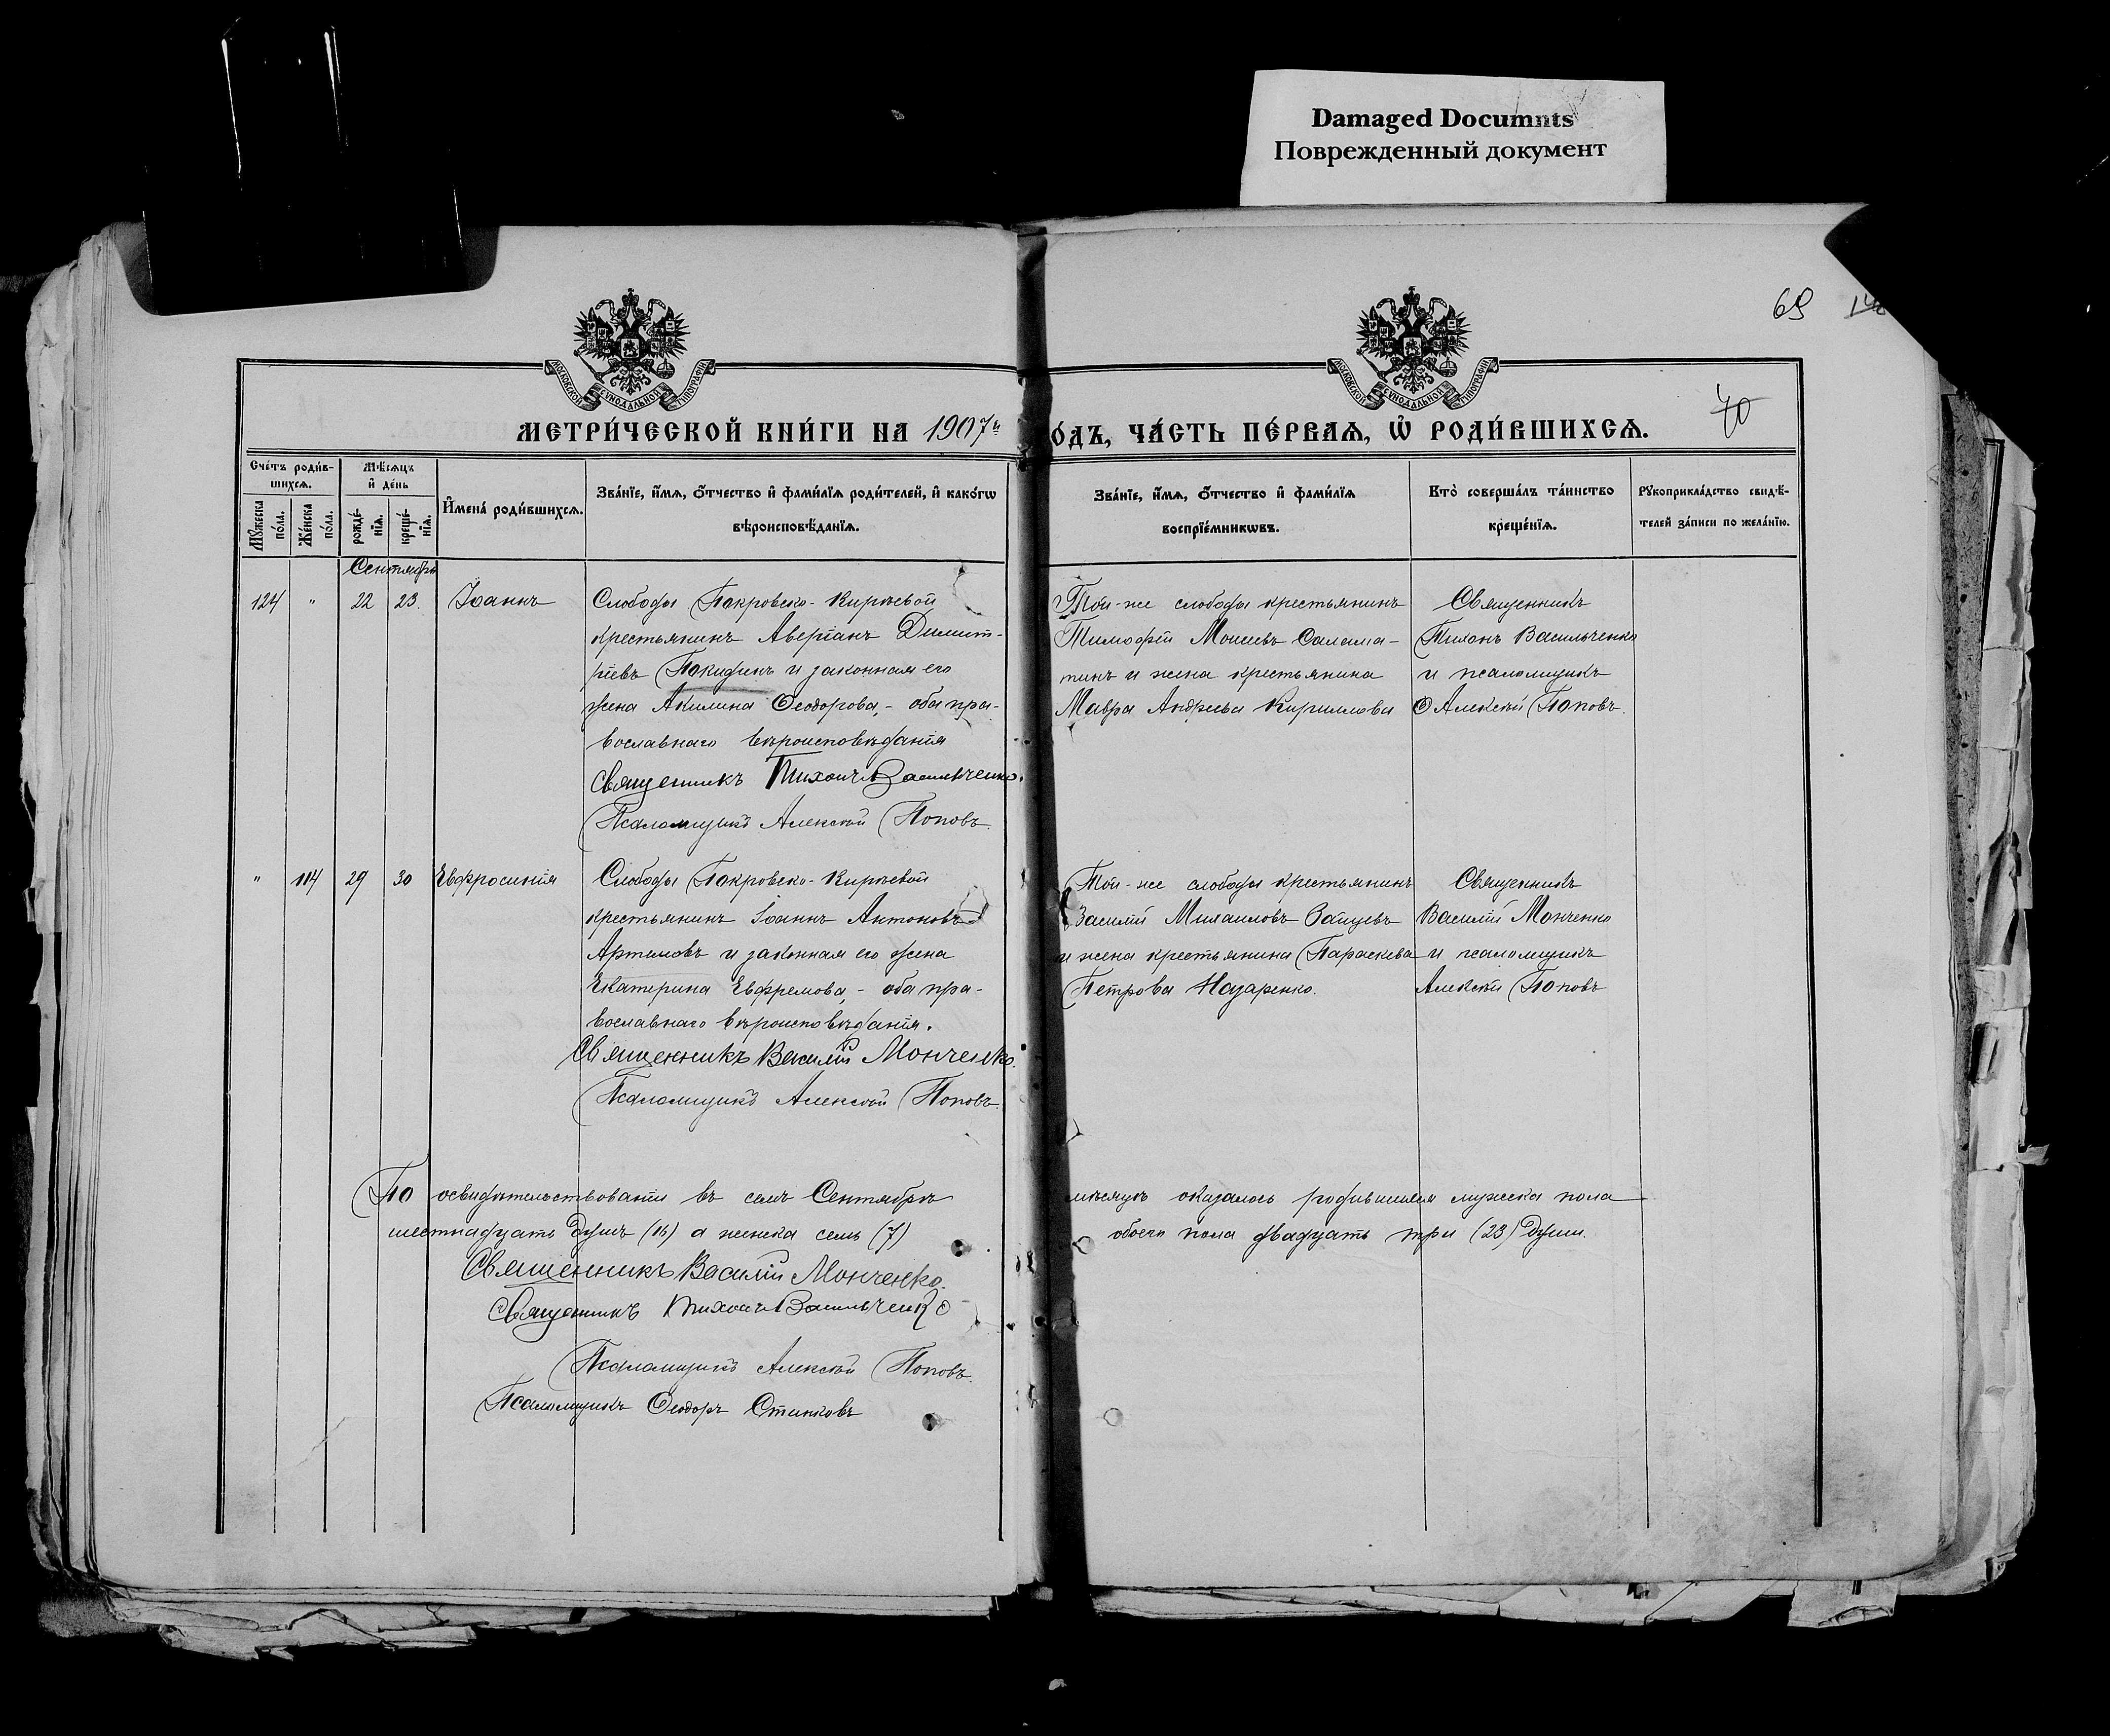 Damaged Documnts
Поврежденный документ
69
МОСКОВСКОЙ СѴНОДАЛЬНОЙ ТИПОГРАФІИ
МОСКОВСКОЙ СѴНОДАЛЬНОЙ ТИПОГРАФІИ
70
МЕТРИ́ЧЕСКОЙ КНИ́ГИ НА 1907й
О́ДЪ, ЧА́СТЬ ПЕ́РВАѦ, Ѡ҆ РОДИ́ВШИХСѦ.
Сче́тъ роди́в-
шихсѧ.
Мꙋ́жеска по́ла.
Же́нска по́ла.
Мѣ́сѧцъ
и҆ де́нь
рожде́-
нїѧ.
креще́-
нїѧ.
И҆мена̀ роди́вшихсѧ.
Зва́нїе, и҆́мѧ, ѻ҆́тчество и҆ фами́лїѧ роди́телей, и҆ како́гѡ
вѣроисповѣ́данїѧ.
Зва́нїе, и҆́мѧ, ѻ҆́тчество и҆ фами́лїѧ
воспрїе́мникѡвъ.
Кто̀ соверша́лъ та́инство
креще́нїѧ.
Рꙋкоприкла́дство свидѣ́-
телей за́писи по жела́нїю.
Сентябрь
124 " 22 23. Іоаннъ
Слободы Покровско-Киреевой
крестьянинъ Аверіанъ Димит-
ріевъ Покидинъ и законная его
жена Акилина Ѳеодорова, - оба пра-
вославнаго вѣроисповѣданія
Священникъ Тихонъ Васильченко.
Псаломщикъ Алексѣй Поповъ.
Той-же слободы крестьянинъ
Тимофей Моисеевъ Салама-
тинъ и жена крестьянина
Мавра Андреева Кириллова
Священникъ
Тихонъ Васильченко
и псаломщикъ
Алексѣй Поповъ.
" 114 29 30 Евфросинія
Слободы Покровско-Киреевой
крестьянинъ Іоаннъ Антоновъ
Артемовъ и законная его жена
Екатерина Евфремова, - оба пра-
вославнаго вѣроисповѣданія.
Священникъ Василій Монченко.
Псаломщикъ Алексѣй Поповъ.
Той-же слободы крестьянинъ
Василій Михаиловъ Зайцевъ
и жена крестьянина Параскева
Петрова Назаренко.
Священникъ
Василій Монченко
и псаломщикъ
Алексѣй Поповъ
По освидѣтельствованіи въ семъ Сентябрѣ мѣсяцѣ оказалось родившихся мужска пола
шестнадцать душъ (16) а женска семь (7) обоего пола двадцать три (23) души.
Священникъ Василій Монченко.
Священникъ Тихонъ Васильченко
Псаломщикъ Алексѣй Поповъ.
Псаломщикъ Ѳеодоръ